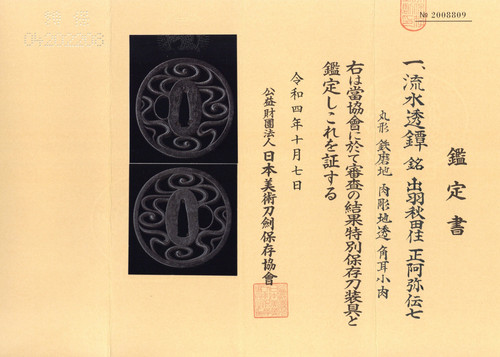 № 2008809
鑑定書
一、流水透鐔 銘 出羽秋田住 正阿弥伝七
丸形 鉄磨地 肉彫地透 角耳小肉
右は當協會に於て審査の結果特別保存刀装具と
鑑定しこれを証する
令和四年十月七日
公益財團法人 日本美術刀劍保存協會